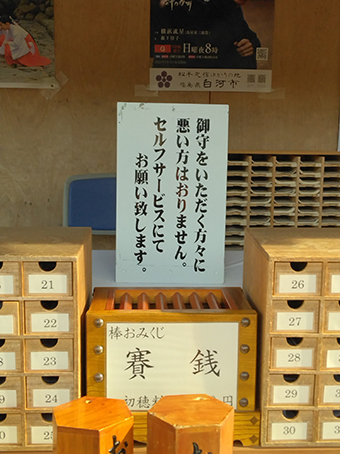 横浜流星
日曜夜8時
福島県 白河市
御守をいただく方々に
悪い方はおりません。
セルフサービスにて
お願い致します。
棒おみくじ
賽 銭
初穂料
円
21
22
23
24
25
26
27
28
29
30